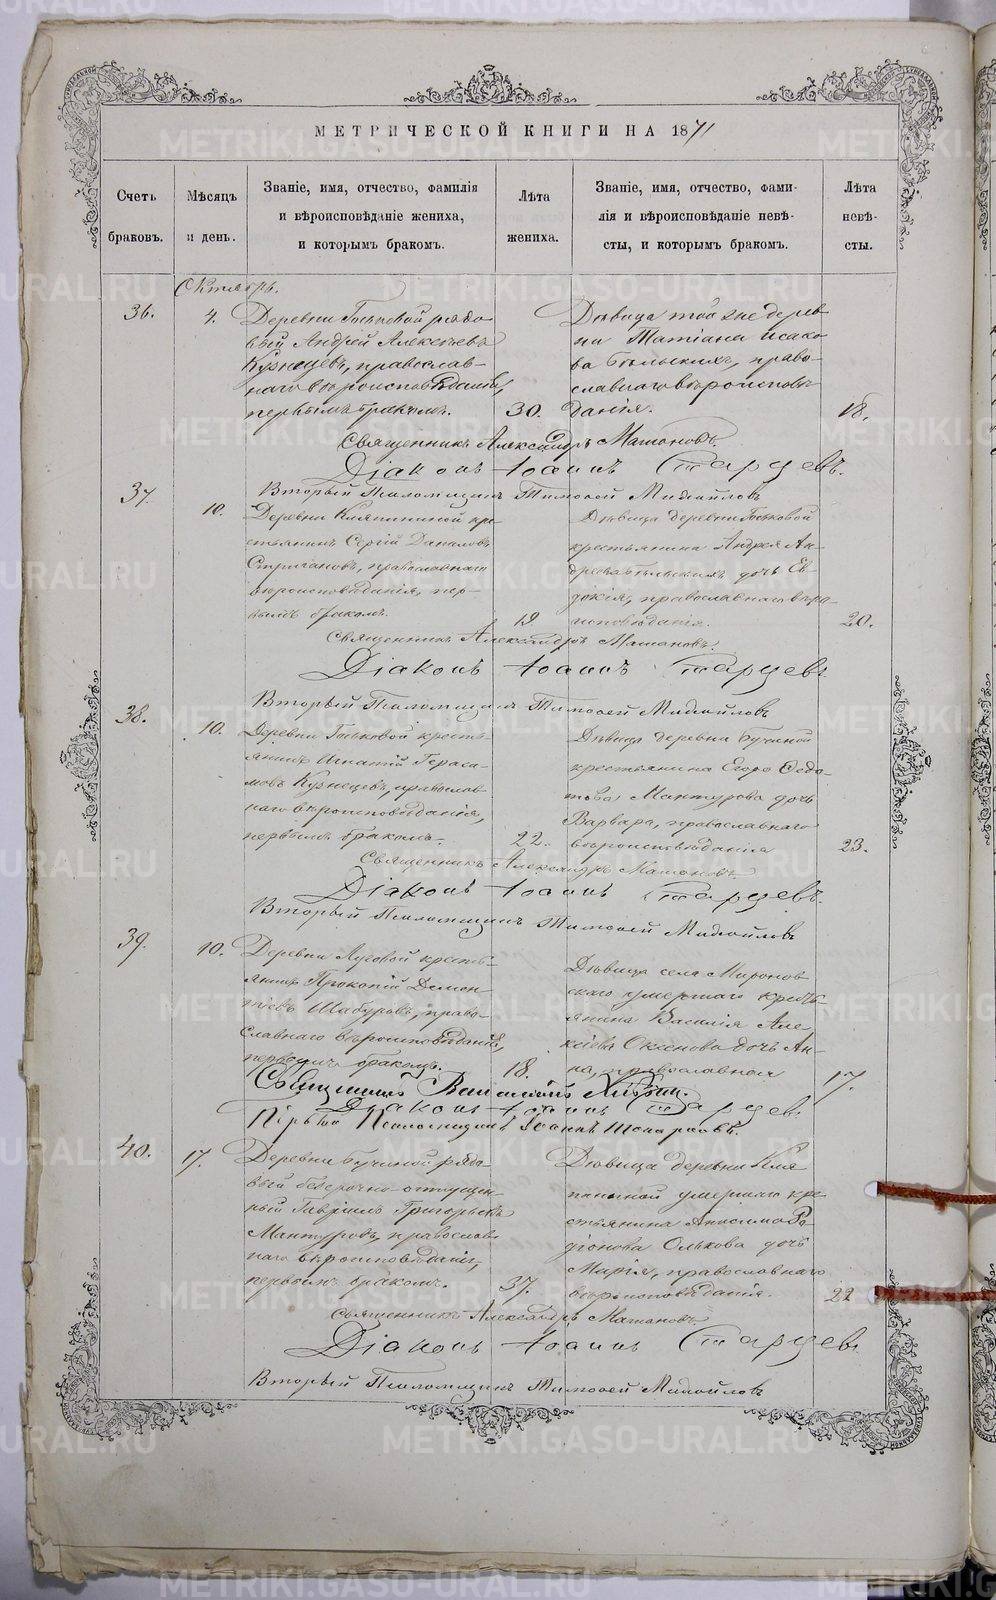 МЕТРИЧЕСКОЙ КНИГИ НА 1871
Счетъ браковъ.
Мѣсяцъ и день.
Званіе, имя, отчество, фамилія
и вѣроисповѣданіе жениха,
и которымъ бракомъ.
Лѣта жениха.
Званіе, имя, отчество, фами-
лія и вѣроисповѣданіе невѣ-
сты, и которымъ бракомъ.
Лѣта невѣ-
сты.
Октябрь.
36.
4.
Деревни Гоьковой рядо-
вый Андрей Алексѣевъ
Кузнецовъ, православ-
наго вѣроисповѣданія,
первымъ бракомъ.
30.
Дѣвица той же дерев-
ни Татіана Исако-
ва Бѣлыхъ, право-
славнаго вѣроисповѣ-
данія.
18.
Священникъ Александръ
Діаконъ Іоаннъ Старцевъ.
Вторый Псаломщикъ Тимофей Михайловъ
37.
10.
Деревни кре-
стьянинъ Сергій Даниловъ
Стригановъ, православнаго
вѣроисповѣданія, пер-
вымъ бракомъ.
19
Дѣвица деревни
крестьянина Андрея Ан-
дреева дочь Ев-
докія, православнаго вѣро-
исповѣданія.
20.
Священникъ Александръ
Діаконъ Іоаннъ Старцевъ
Вторый Псаломщикъ Тимофей Михайловъ
38.
10.
Деревни кресть-
янинъ Игнатій Гераси-
мовъ Кузнецовъ, православ-
наго вѣроисповѣданія,
первымъ бракомъ.
22.
Дѣвица деревни Бучиной
крестьянина Егора Ѳедо-
това Мантурова дочь
Варвара, православнаго
вѣроисповѣданія
23.
Священникъ Александръ
Діаконъ Іоаннъ Старцевъ.
Вторый Псаломщикъ Тимофей Михайловъ
39.
10.
Деревни Луговой кресть-
янинъ Прокопій Демен-
тіевъ Шабуровъ, право-
славнаго вѣроисповѣданія,
первымъ бракомъ.
18.
Дѣвица села Миронов-
скаго умершаго кресть-
янина Василія Але-
ксіева дочь Ан-
на, православная
17.
Священникъ
Діаконъ Іоаннъ Старцевъ
Псаломщикъ Іоаннъ
40.
17.
Деревни Бучиной рядо-
вый безсрочно-отпущен-
ный Гавріилъ Григорьевъ
Мантуровъ, православ-
наго вѣроисповѣданія,
первымъ бракомъ.
37.
Дѣвица деревни Кля-
пиной умершаго кре-
стьянина Анисима Ро-
діонова Олькова дочь
Марія, православнаго
вѣроисповѣданія.
22
Священникъ Александръ
Діаконъ Іоаннъ Старцевъ
Вторый Псаломщикъ Тимофей Михайловъ
METRIKI.GASO-URAL.RU